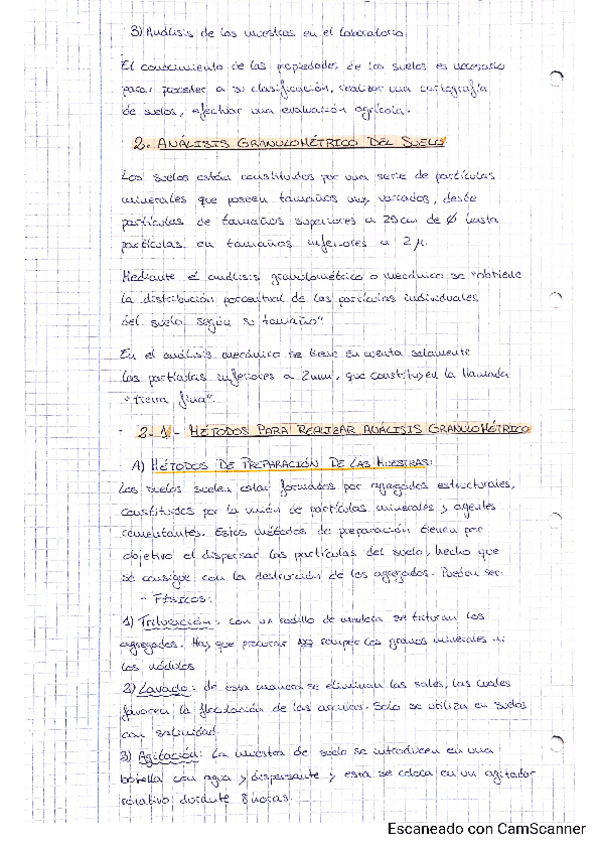 3) Análisis de las muestras en el laboratorio
El conocimiento de las propiedades de los suelos es necesario
para proceder a su clasificación, realizar una cartografía
de suelos, efectuar una evaluación agrícola.
2. ANÁLISIS GRANULOMÉTRICO DEL SUELO
Los suelos están constituidos por una serie de partículas
minerales que poseen tamaños muy variados, desde
partículas de tamaños superiores a 25cm de Ø hasta
partículas en tamaños inferiores a 2 μ.
Mediante el análisis granulométrico o mecánico se "obtiene
la distribución porcentual de las partículas individuales
del suelo según su tamaño"
En el análisis mecánico se tiene en cuenta solamente
las partículas inferiores a 2mm, que constituyen la llamada
"tierra fina".
2.1 - MÉTODOS PARA REALIZAR ANÁLISIS GRANULOMÉTRICO
A) MÉTODOS DE PREPARACIÓN DE LAS MUESTRAS:
Los suelos suelen estar formados por agregados estructurales,
constituidos por la unión de partículas minerales y agentes
cementantes. Estos métodos de preparación tienen por
objetivo el dispersar las partículas del suelo, hecho que
se consigue con la destrucción de los agregados. Pueden ser:
- Físicos:
1) Trituración: con un rodillo de madera se trituran los
agregados. Hay que procurar no romper los granos minerales ni
los nódulos
2) Lavado: de esta manera se eliminan las sales, las cuales
favorecen la floculación de las arcillas. Solo se utiliza en suelos
con salinidad.
3) Agitación: La muestra de suelo se introducen en una
botella con agua y dispersante y esta se coloca en un agitador
rotativo durante 8 horas.
Escaneado con CamScanner